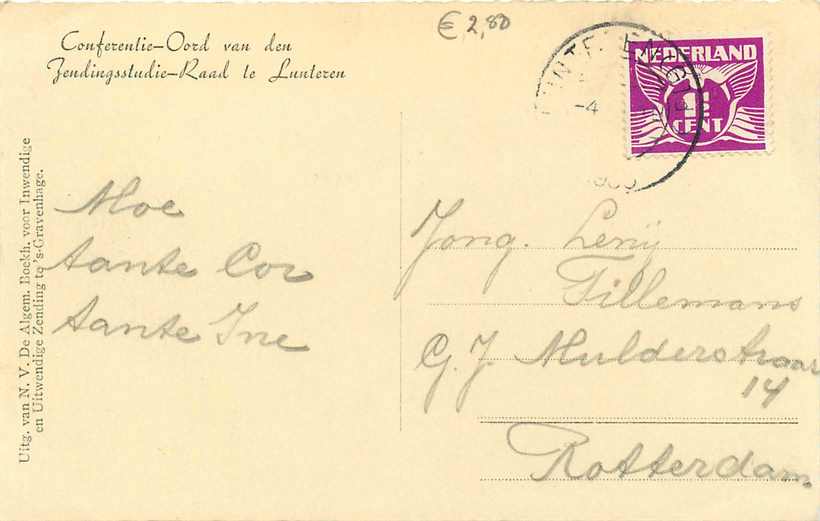 € 2,80
Conferentie-Oord van den
Zendingsstudie-Raad te Lunteren
NEDERLAND
1½
CENT
-4
Uitg. van N. V. De Algem. Boekh. voor Inwendige
en Uitwendige Zending te 's-Gravenhage.
Moe
tante Cor
tante Ine
Jong. Leny
Tillemans
G. J. Mulderstraat
14
Rotterdam.